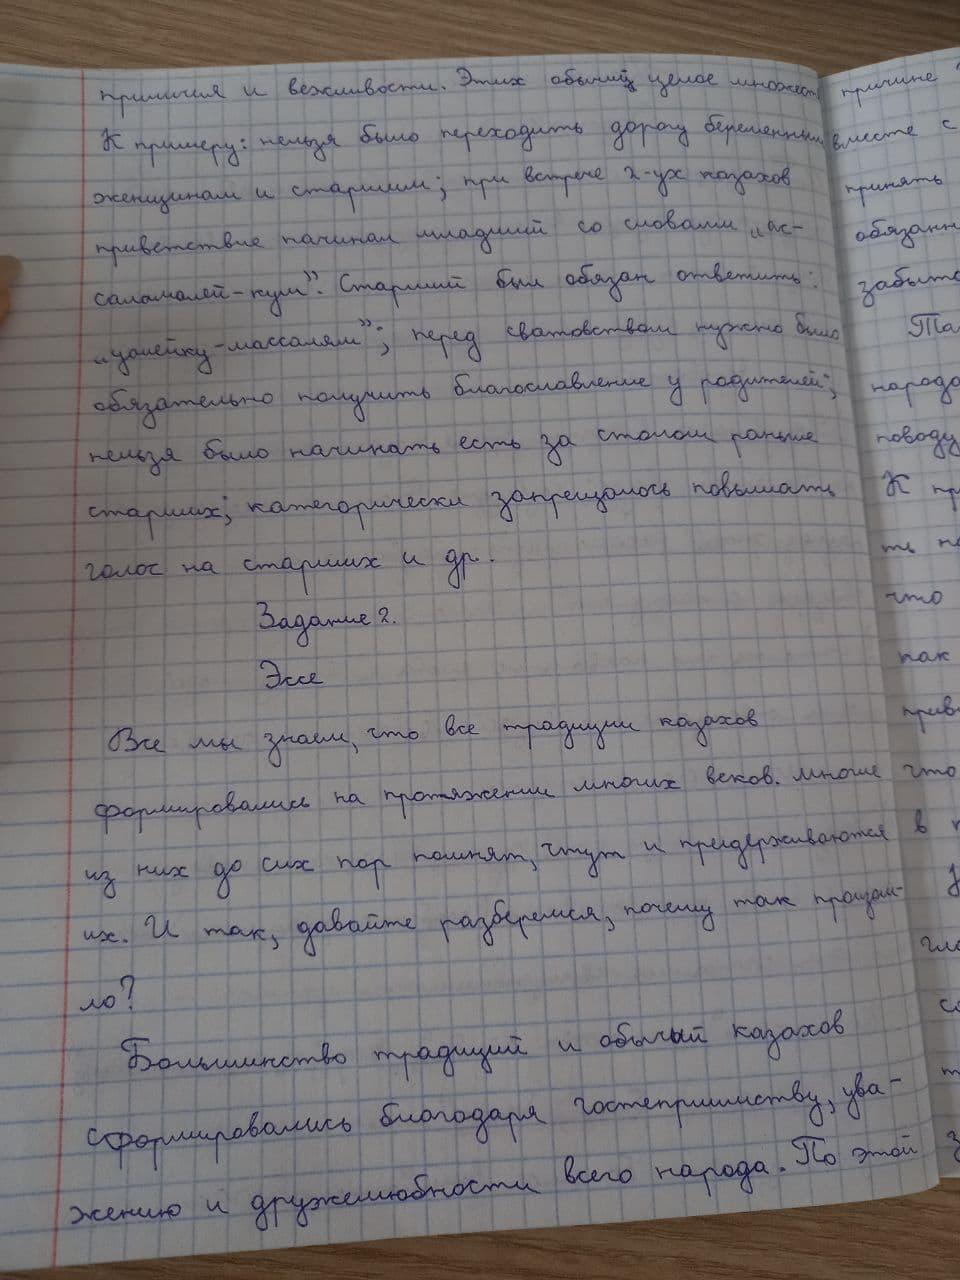 приличия и вежливости. Этих обычий целое множест
К примеру: нельзя было переходить дорогу беременным
женщинам и старшим; при встрече 2-ух казахов
приветствие начинал младший со словами „ас-
саламалей-кум”. Старший был обязан ответить:
„уалейку-массалям”; перед сватовством нужно было
обязательно получить благославление у родителей;
нельзя было начинать есть за столом раньше
старших; категорически запрещалось повышать
голос на старших и др.
Задание 2.
Эссе
Все мы знаем, что все традиции казахов
формировались на протяжении многих веков. Многие
из них до сих пор помнят, чтут и придерживаются
их. И так, давайте разберемся, почему так произош-
ло?
Большинство традиций и обычай казахов
сформировались благодаря гостеприимству, ува-
жению и дружелюбности всего народа. По этой
причине
вместе с
принять
обязанн
забыто
Та
народа
поводу
К пр
ть на
что
как
прив
что
в
гла
со
т
з